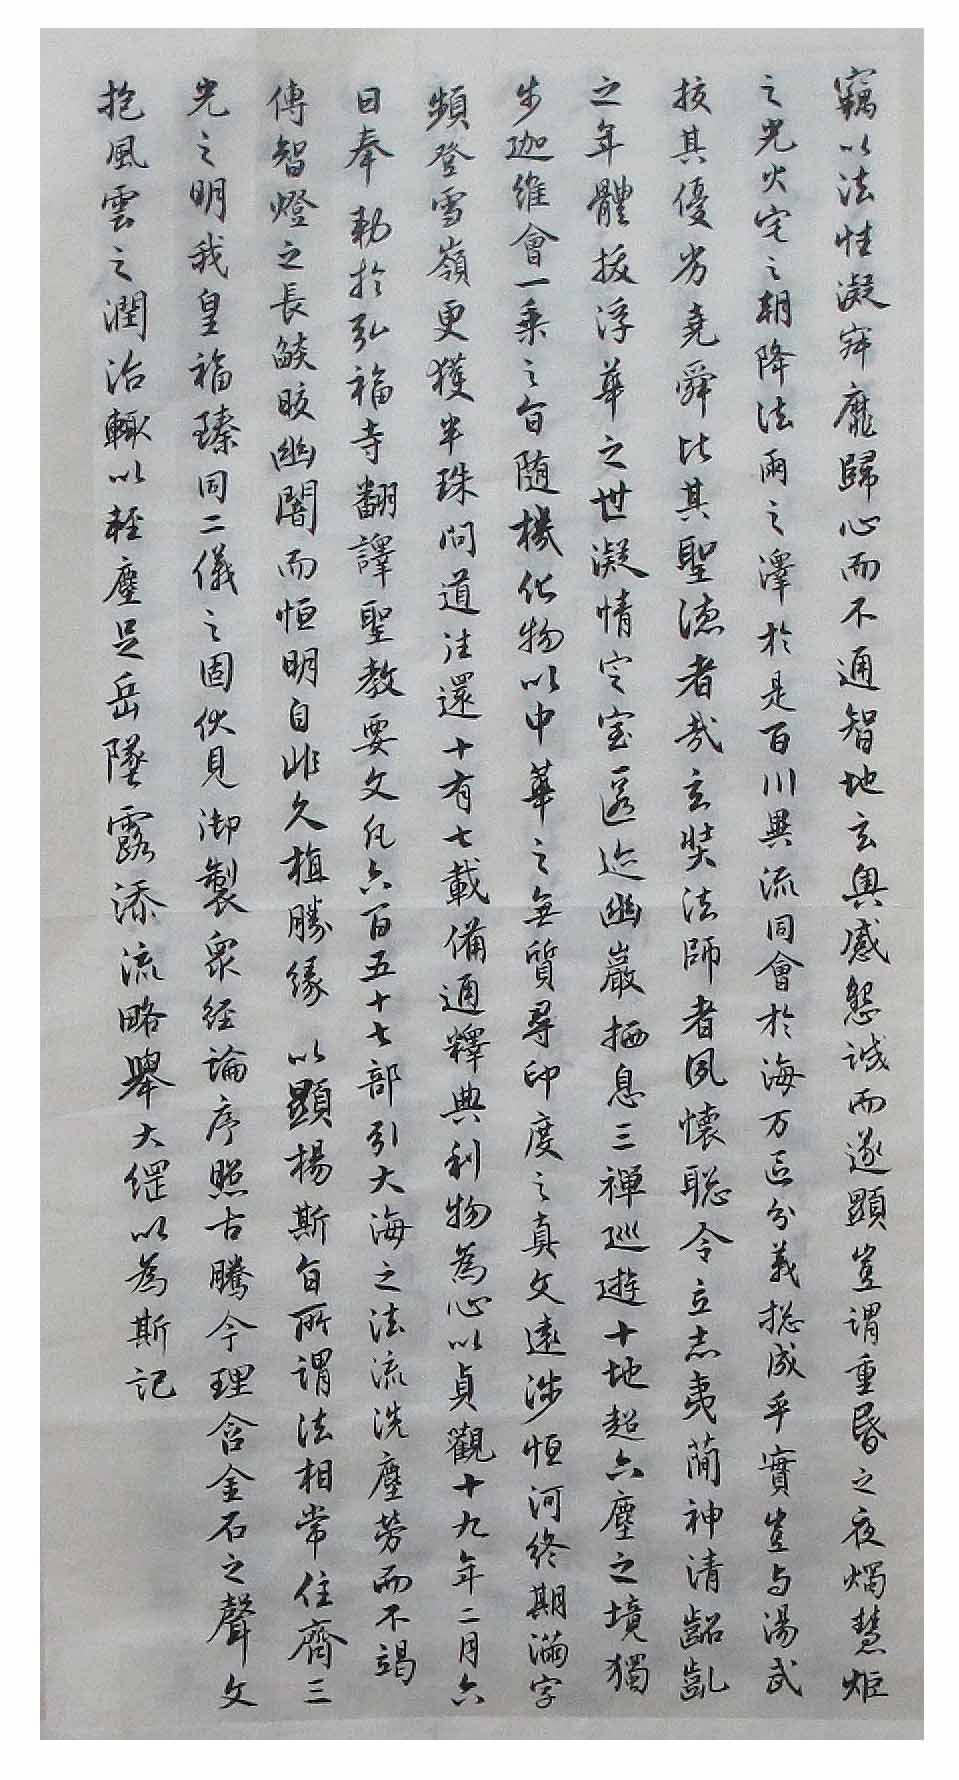 竊以法性凝寂靡歸心而不通智地玄奧感懇誠而遂顯豈謂重昏之夜燭慧炬
之光火宅之朝降法雨之澤於是百川異流同會於海万區分義捴成乎實豈与湯武
挍其優劣堯舜比其聖德者哉玄奘法師者夙懷聡令立志夷簡神清齠齓
之年體拔浮華之世凝情定室匿迹幽巖栖息三禪巡遊十地超六塵之境獨
步迦維會一乘之旨随機化物以中華之無質尋印度之真文遠涉恒河終期滿字
頻登雪嶺更獲半珠問道法還十有七載備通釋典利物為心以貞觀十九年二月六
日奉勅於弘福寺翻譯聖教要文凡六百五十七部引大海之法流洗塵勞而不竭
傳智燈之長燄皎幽闇而恒明自非久植勝緣以顯揚斯旨所謂法相常住齊三
光之明我皇福臻同二儀之固伏見御製衆經論序照古騰今理含金石之聲文
抱風雲之潤治輙以輕塵足岳墜露添流略舉大綱以為斯記